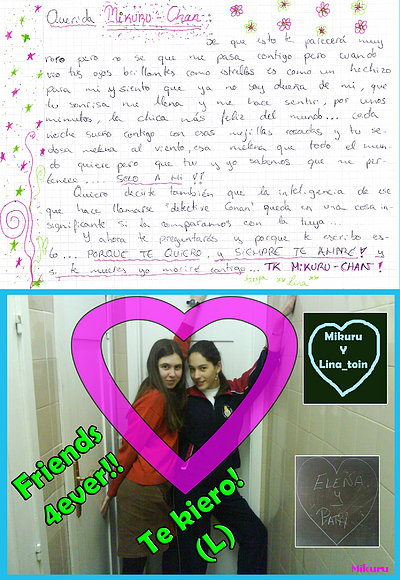 Querida Mikuru-Chan:
Se que esto te parecerá muy
raro pero no se que me pasa contigo pero cuando
veo tus ojos brillantes como estrellas es como un hechizo
para mi y siento que ya no soy dueña de mi, que
tu sonrisa me llena y me hace sentir, por unos
minutos, la chica más feliz del mundo... cada
noche sueño contigo con esas mejillas rosadas y tu se-
dosa melena al viento, esa melena que todo el mun-
do quiere pero que tu y yo sabemos que me per-
tenece... SOLO A MI V!
Quiero decirte también que la inteligencia de ese
que hace llamarse "detective Conan" queda en una cosa in-
significante si la comparamos con la tuya...
Y ahora te preguntarás y porque te escribo es-
to... PORQUE TE QUIERO, y SIEMPRE TE AMARÉ! y
si te mueres yo moriré contigo... TK MIKURU-CHAN!
Lina
Mikuru
Y
Lina_toin
Friends
4ever!!
Te kiero!
(L)
ELENA
y
PATRI
Mikuru